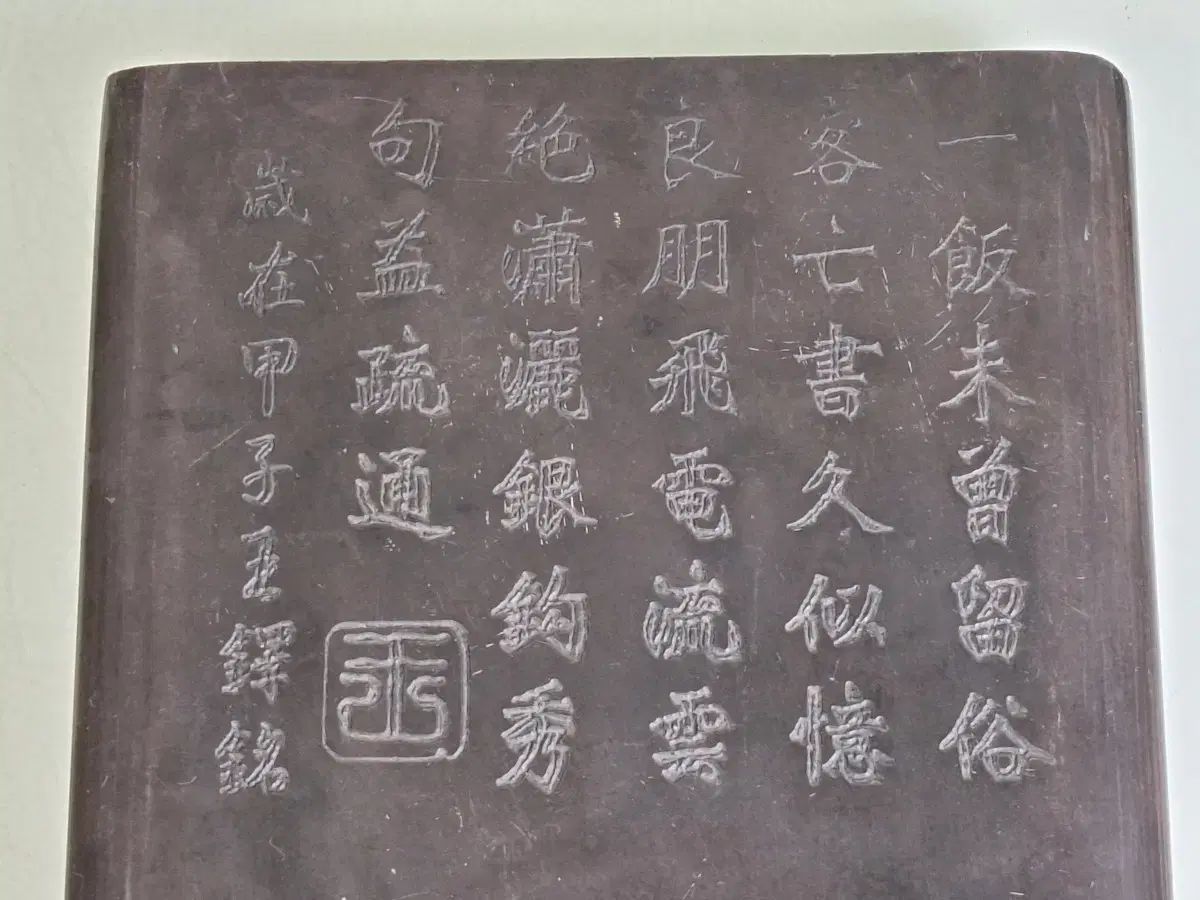 一飯未曾留俗
客亡書久似憶
良朋飛電流雲
絶瀟灑銀鉤秀
句益疏通
歲在甲子王鐸銘